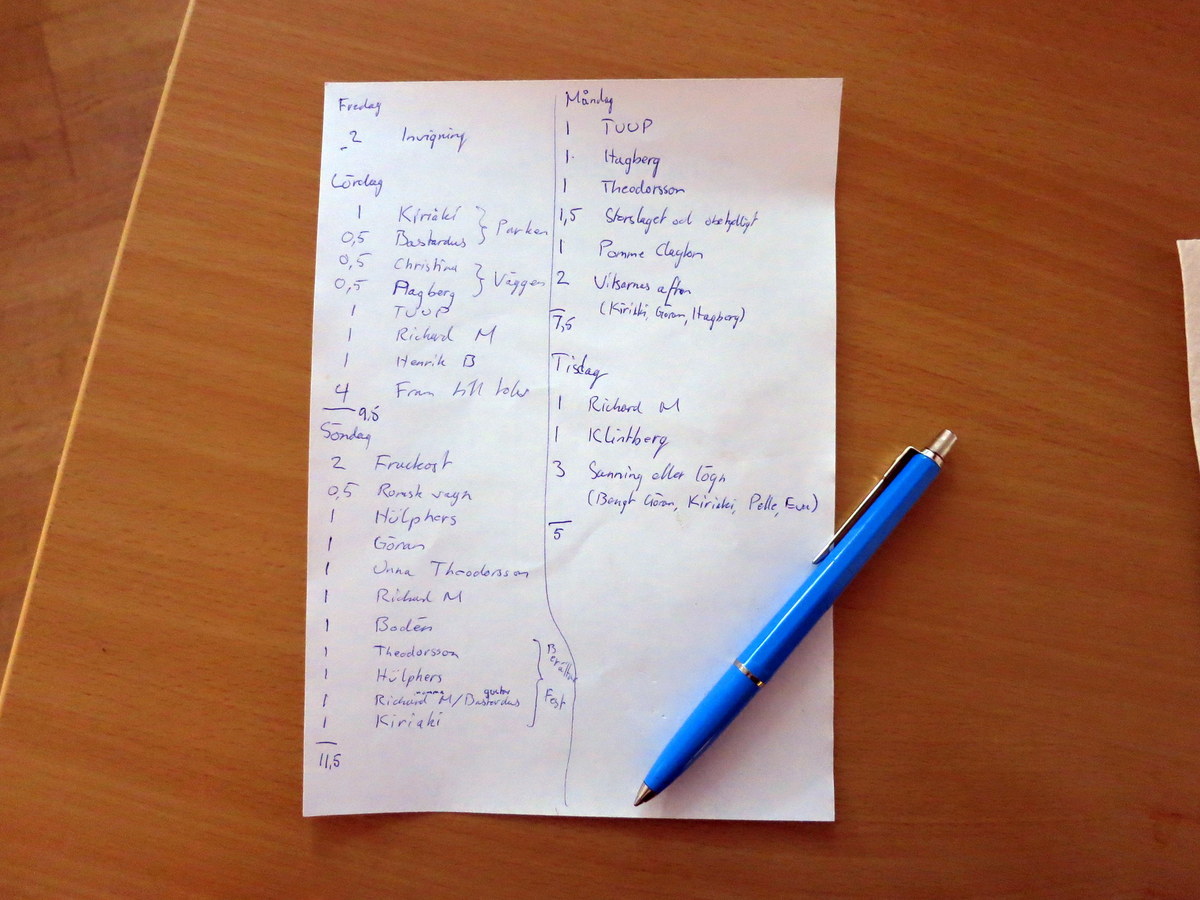 Fredag
2 Invigning
Lördag
1 Kiriaki } Parken
0,5 Bastardus
0,5 Christina } Väggen
0,5 Hagberg
1 TUUP
1 Richard M
1 Henrik B
4 Fram till tolv
9,5
Söndag
2 Fruckost
0,5 Romsk vagn
1 Hülphers
1 Göran
1 Unna Theodorsson
1 Richard M
1 Bodén
1 Theodorsson
1 Hülphers
1 Richard M/Bastardus
1 Kiriaki
Fest
11,5
Måndag
1 TUUP
1 Hagberg
1 Theodorsson
1,5 Storslaget och obetydligt
1 Pomme Clayton
2 Vitsarnas afton
(Kiriaki, Göran, Hagberg)
7,5
Tisdag
1 Richard M
1 Klintberg
3 Sanning eller lögn
(Bengt Göran, Kiriaki, Pelle, Eva)
5